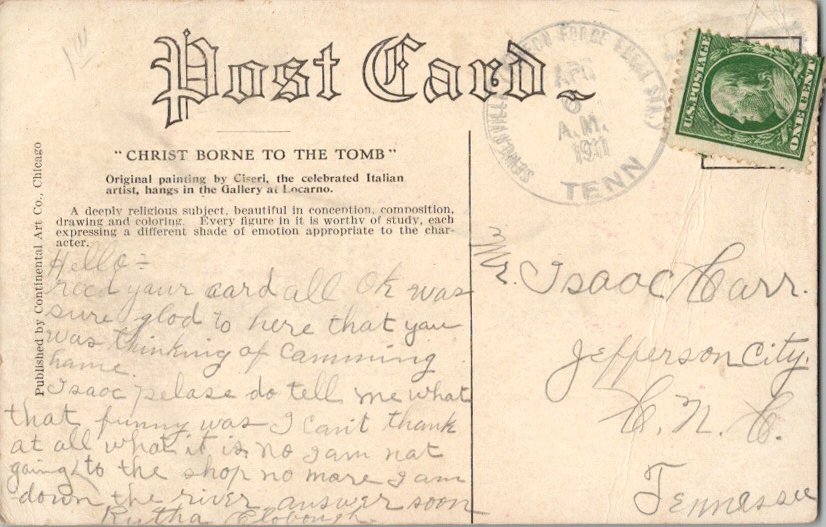 Post Card
"CHRIST BORNE TO THE TOMB"
Original painting by Ciseri, the celebrated Italian
artist, hangs in the Gallery at Locarno.
A deeply religious subject, beautiful in conception, composition,
drawing and coloring. Every figure in it is worthy of study, each
expressing a different shade of emotion appropriate to the char-
acter.
Published by Continental Art Co., Chicago
Hello =
recd your card all Ok was
sure glod to here that you
was thinking of camming
hame.
Isaac pelase do tell me what
that funny was I can't thank
at all what it is no I am nat
going to the shop no more I am
down the river answer soon
Rutha
SEVIERVILLE
APR
6
A.M.
1911
TENN
U.S. POSTAGE
ONE CENT
Mr. Isaac Carr.
Jefferson City.
C. N. C.
Tennessee